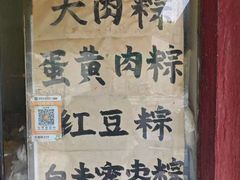 大肉粽
蛋黄肉粽
红豆粽
白末蜜枣粽